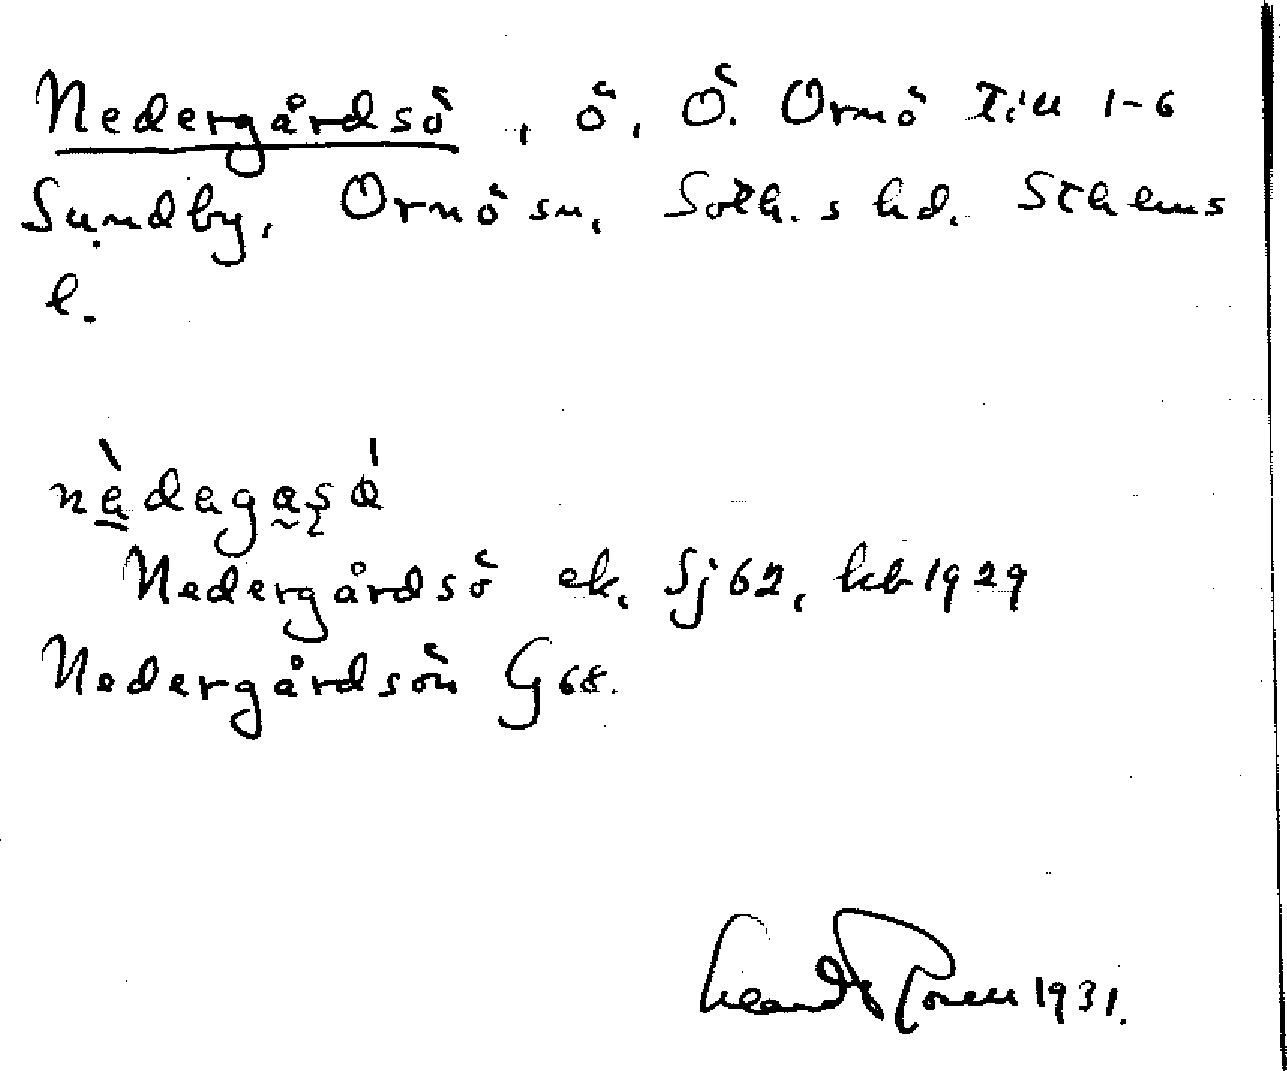 Nedergårdsö, ö, Ö. Ornö Till 1-6
Sundby, Ornö sn, Soth.s hd. Sthlms
l.
nèdagaşö́
Nedergårdsö ek, Sj 62, kb 1929
Nedergårdsön G 68.
1931.